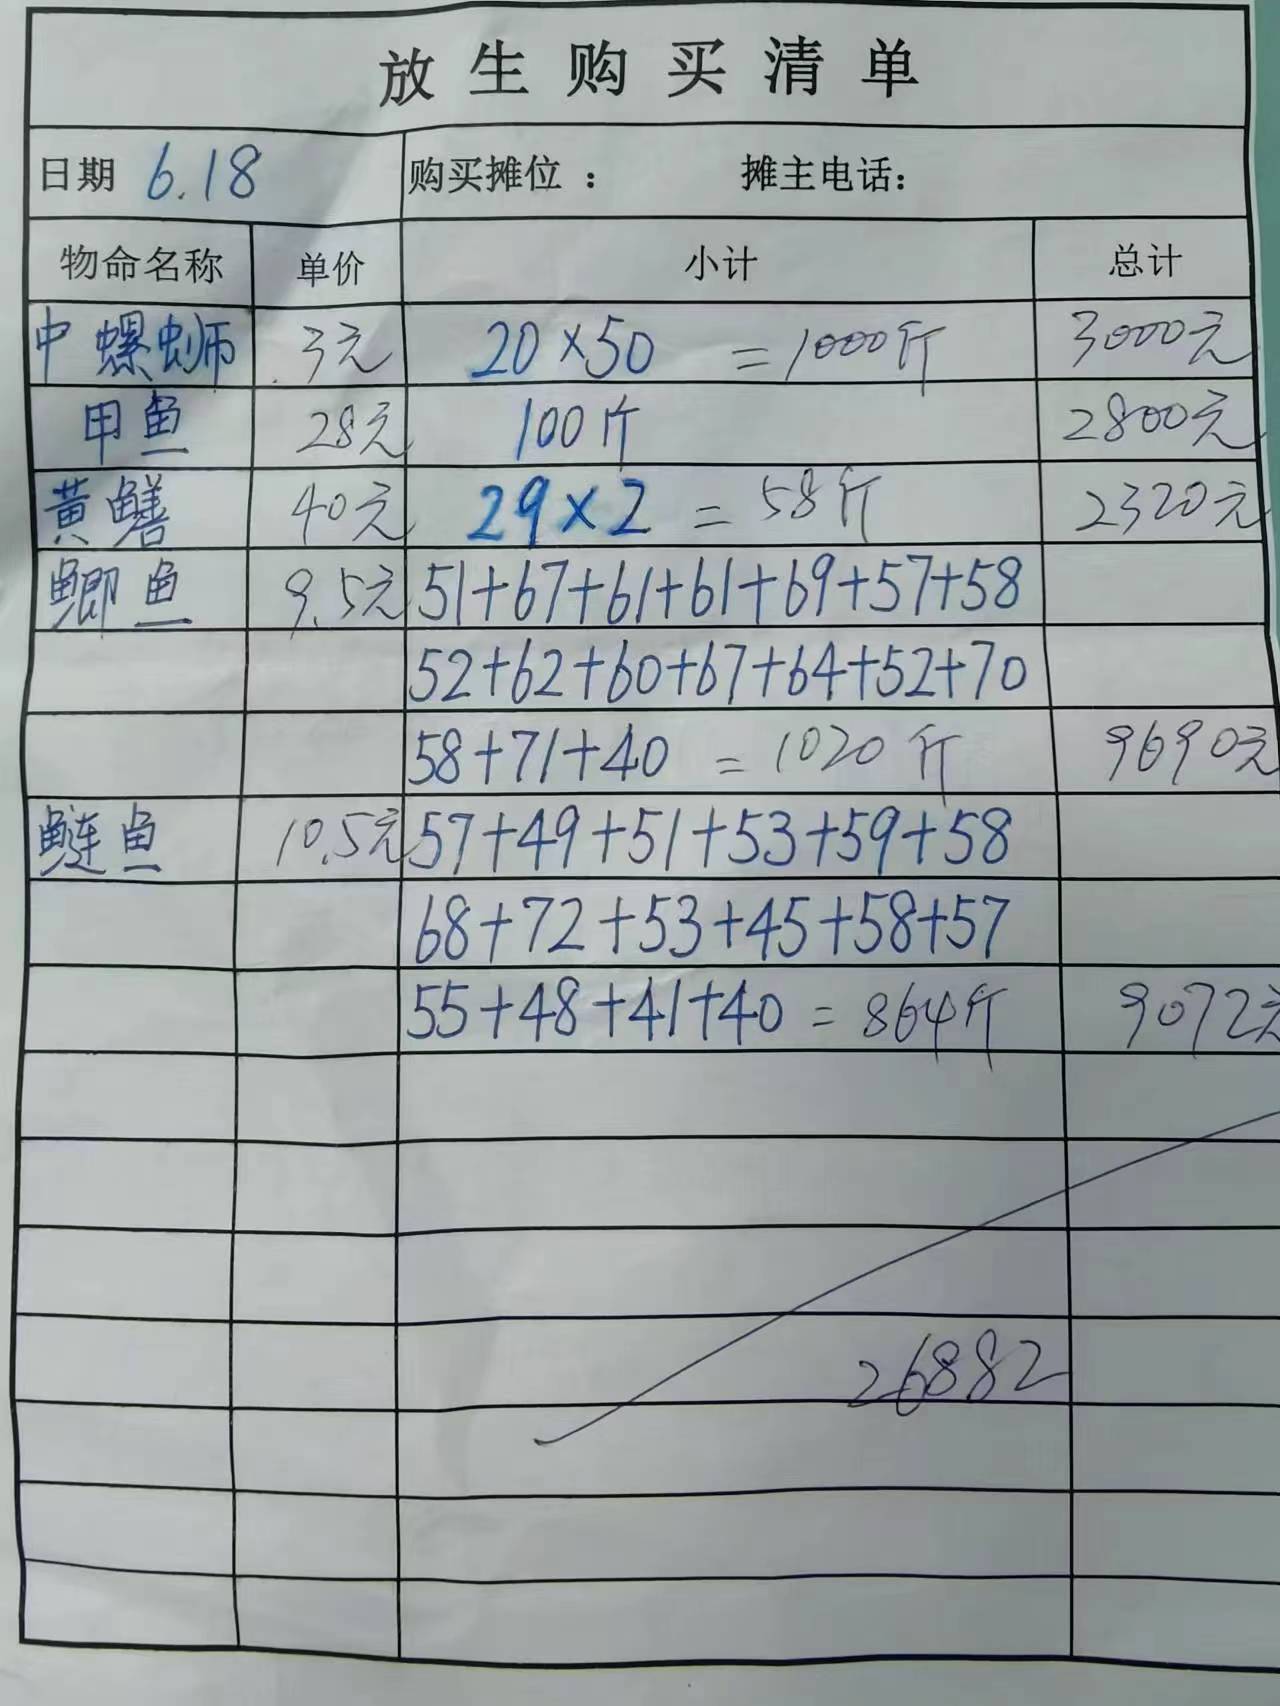 放生购买清单
日期 6.18 购买摊位： 摊主电话：
物命名称 单价 小计 总计
中螺蛳 3元 20×50 =1000斤 3000元
甲鱼 28元 100斤 2800元
黄鳝 40元 29×2 =58斤 2320元
鲫鱼 9.5元 51+67+61+61+69+57+58
52+62+60+67+64+52+70
58+71+40 =1020斤 9690元
鲢鱼 10.5元 57+49+51+53+59+58
68+72+53+45+58+57
55+48+41+40 =864斤 9072元
26882